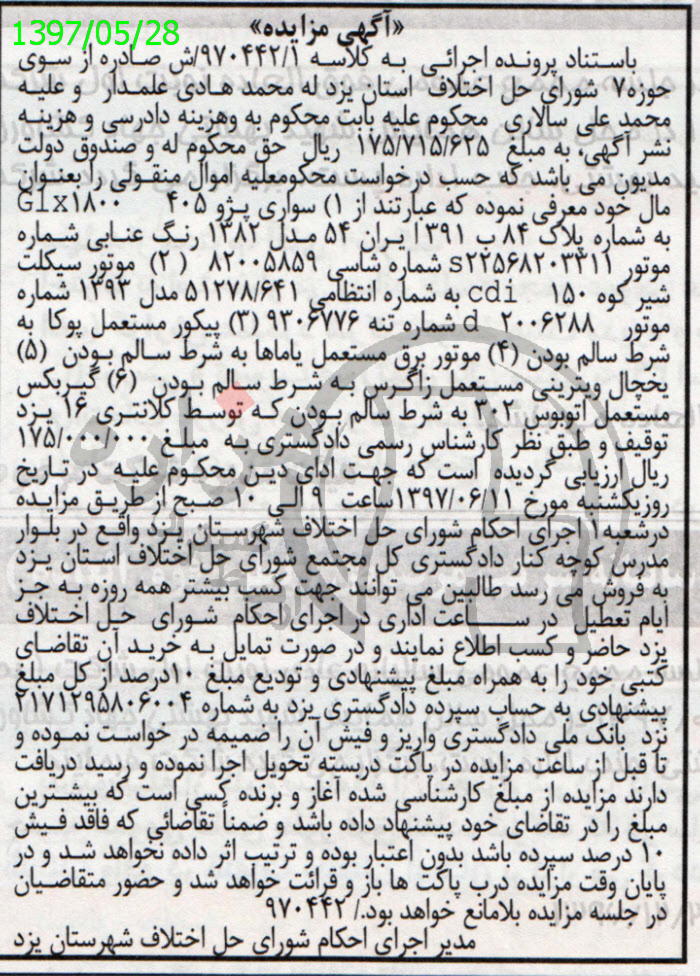 1397/05/28
«آگهی مزایده»
باستناد پرونده اجرائی به کلاسه ۹۷۰۴۴۲/۱/ش صادره از سوی
حوزه۷ شورای حل اختلاف استان یزد له محمد هادی علمدار و علیه
محمد علی سالاری محکوم علیه بابت محکوم به وهزینه دادرسی و هزینه
نشر آگهی، به مبلغ ۱۷۵/۷۱۵/۶۲۵ ریال حق محکوم له و صندوق دولت
مدیون می باشد که حسب درخواست محکومعلیه اموال منقولی را بعنـوان
مال خود معرفی نموده که عبارتند از ۱) سواری پژو ۴۰۵ Glx۱۸۰۰
به شماره پلاک ۸۴ ب ۳۹۱ ایران ۵۴ مدل ۱۳۸۲ رنگ عنابی شماره
موتور s۲۲۵۶۸۲۰۳۳۱۱ شماره شاسی ۸۲۰۰۵۸۵۹ (۲) موتور سیکلت
شیر کوه ۱۵۰ cdi به شماره انتظامی ۵۱۲۷۸/۶۴۱ مدل ۱۳۹۳ شماره
موتور d ۲۰۰۶۲۸۸ شماره تنه ۹۳۰۶۷۷۶ (۳) پیکور مستعمل پوکا به
شرط سالم بودن (۴) موتور برق مستعمل یاماها به شرط سالم بودن (۵)
یخچال ویترینی مستعمل زاگرس به شرط سالم بودن (۶) گیربکس
مستعمل اتوبوس ۳۰۲ به شرط سالم بودن که توسط کلانتری ۱۶ یزد
توقیف و طبق نظر کارشناس رسمی دادگستری به مبلغ ۱۷۵/۰۰۰/۰۰۰
ریال ارزیابی گردیده است که جهت ادای دین محکوم علیه در تاریخ
روزیکشنبه مورخ ۱۳۹۷/۰۶/۱۱ساعت ۹ الی ۱۰ صبح از طریق مزایده
درشعبه۱ اجرای احکام شورای حل اختلاف شهرستان یزد واقع در بلوار
مدرس کوچه کنار دادگستری کل مجتمع شورای حل اختلاف استان یزد
به فروش می رسد طالبین می توانند جهت کسب بیشتر همه روزه به جز
ایام تعطیل در ساعت اداری در اجرای احکام شورای حل اختلاف
یزد حاضر و کسب اطلاع نمایند و در صورت تمایل به خرید آن تقاضای
کتبی خود را به همراه مبلغ پیشنهادی و تودیع مبلغ ۱۰درصد از کل مبلغ
پیشنهادی به حساب سپرده دادگستری یزد به شماره ۲۱۷۱۲۹۵۸۰۶۰۰۴
نزد بانک ملی دادگستری واریز و فیش آن را ضمیمه در خواست نموده و
تا قبل از ساعت مزایده در پاکت دربسته تحویل اجرا نموده و رسید دریافت
دارند مزایده از مبلغ کارشناسی شده آغاز و برنده کسی است که بیشترین
مبلغ را در تقاضای خود پیشنهاد داده باشد و ضمناً تقاضائی که فاقد فیش
۱۰ درصد سپرده باشد بدون اعتبار بوده و ترتیب اثر داده نخواهد شد و در
پایان وقت مزایده درب پاکت ها باز و قرائت خواهد شد و حضور متقاضیان
در جلسه مزایده بلامانع خواهد بود./ ۹۷۰۴۴۲
مدیر اجرای احکام شورای حل اختلاف شهرستان یزد